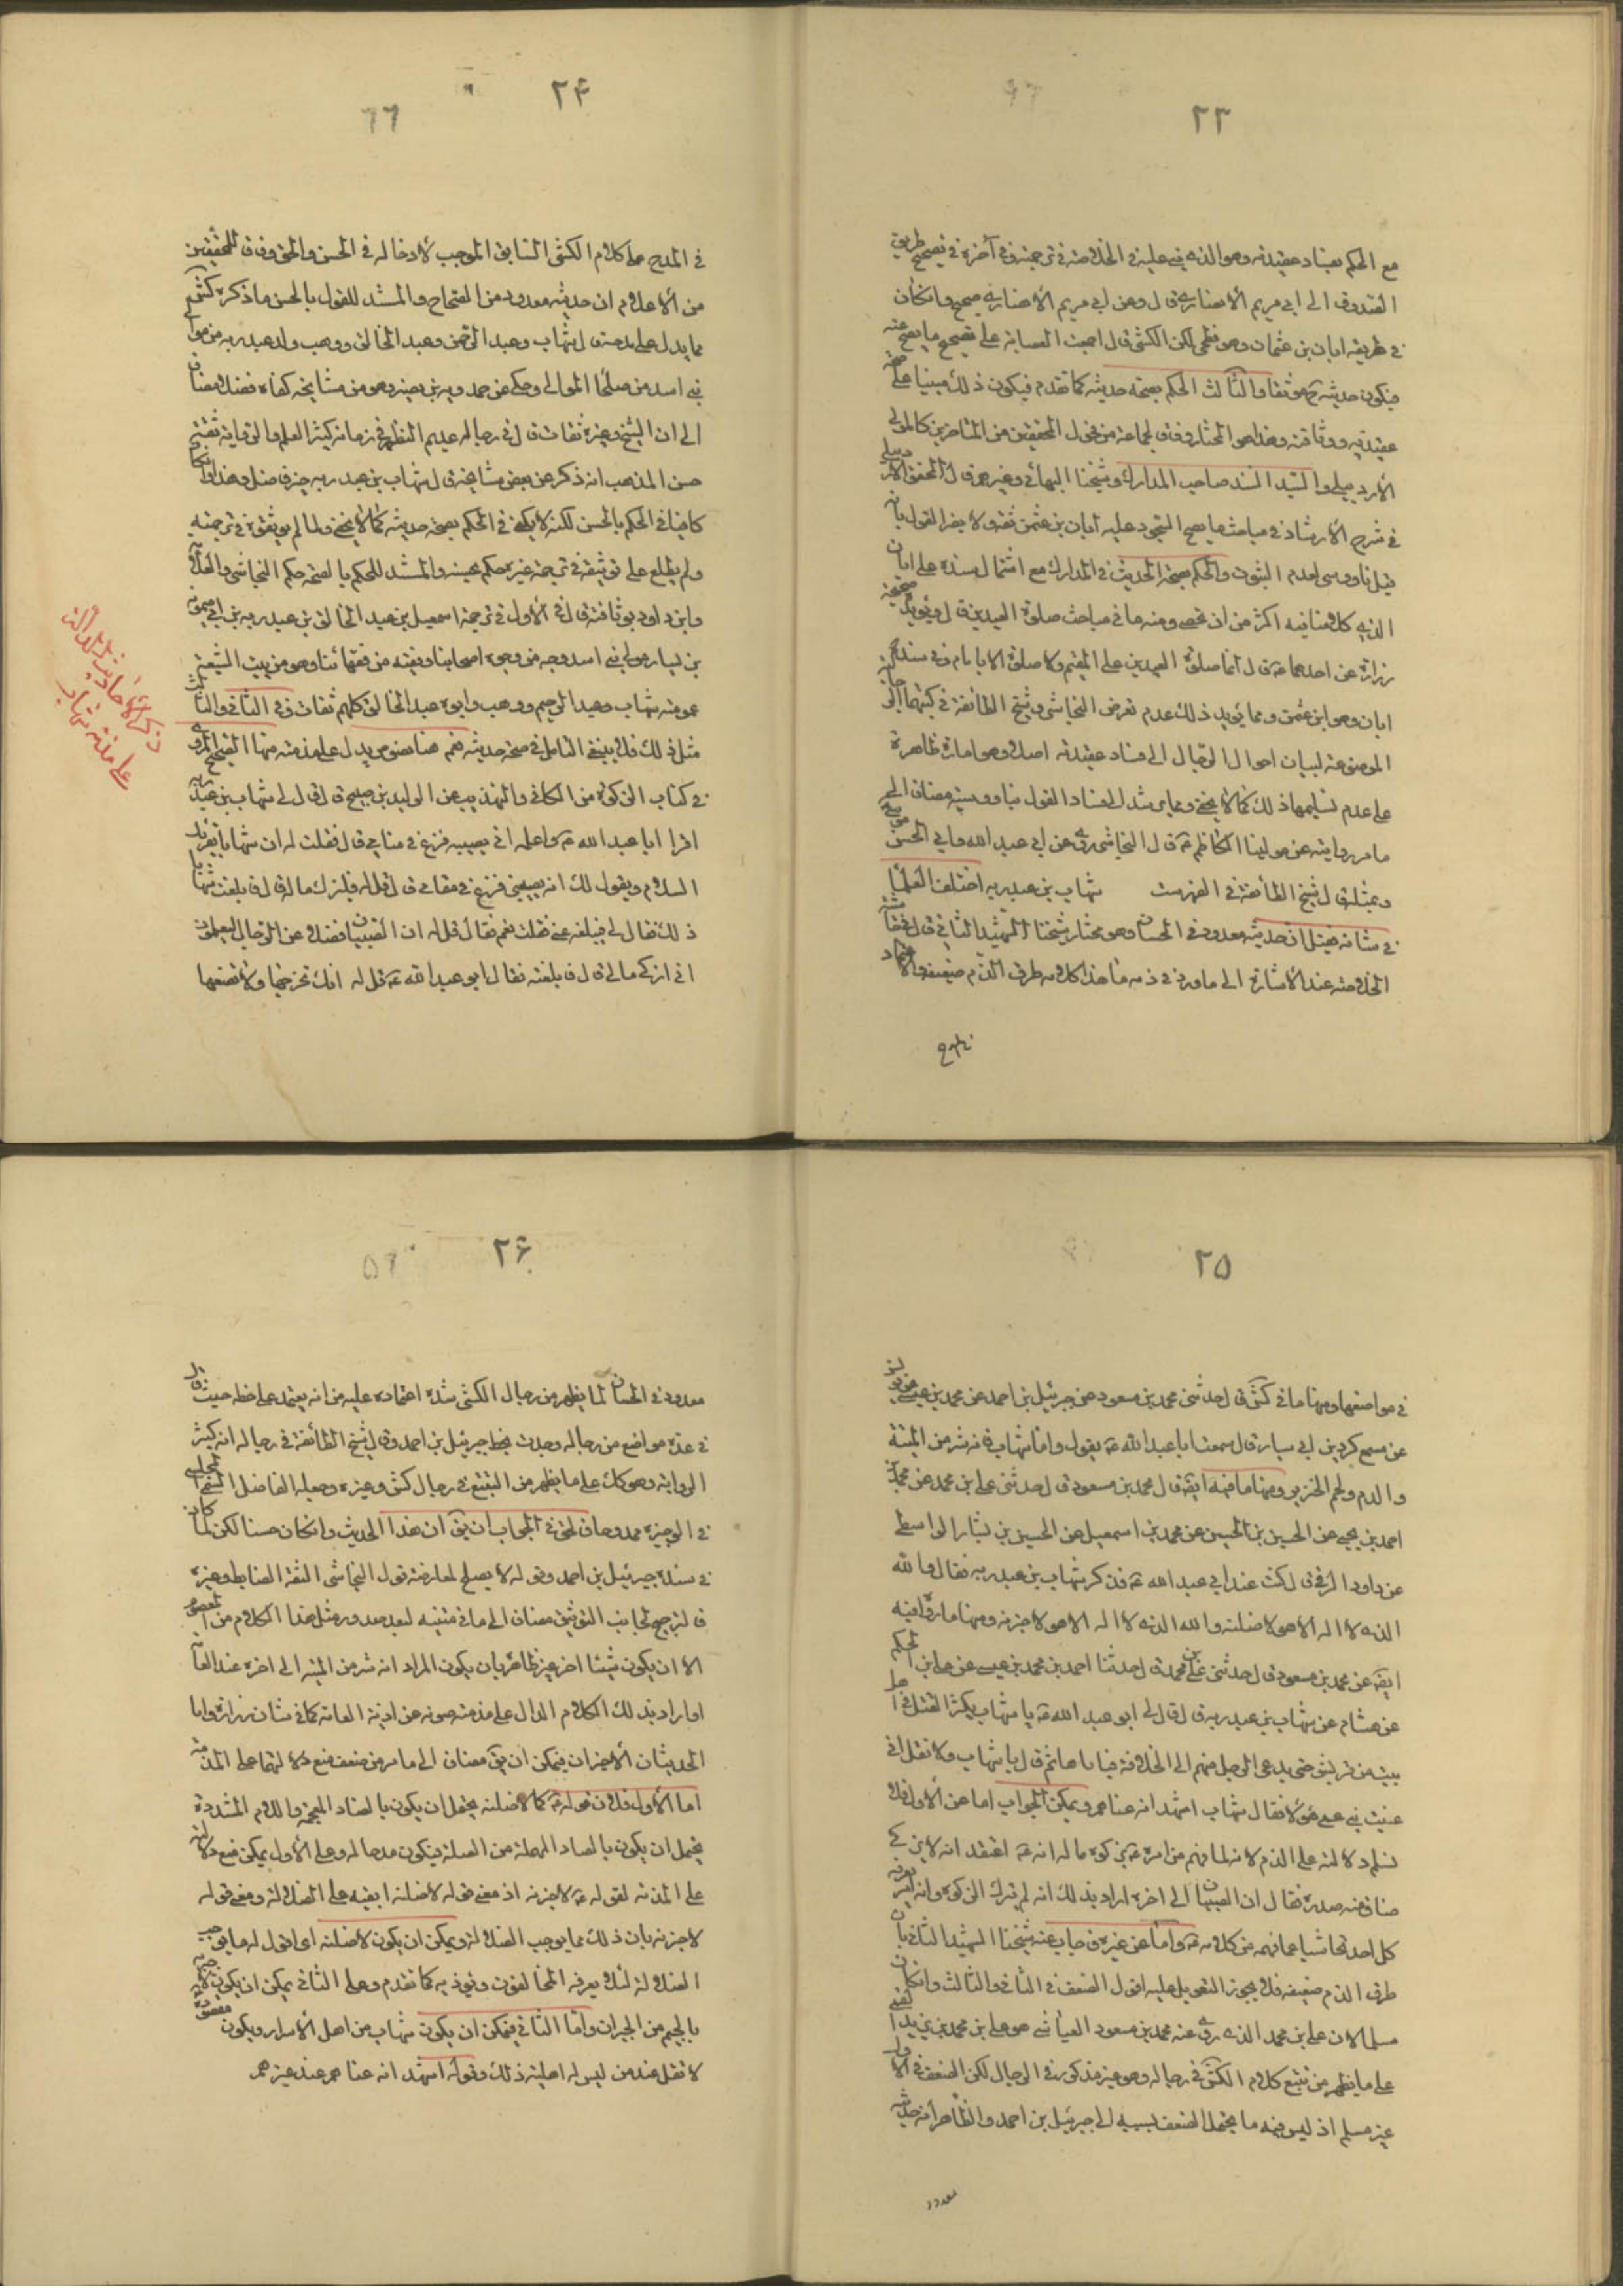 ۲۳
مع الحكم بفساد عقيدته وهو الذي بنى عليه في الخلاصة في ترجمته وفي آخره في تصحيح طريق
الصدوق الى ابي مريم الأنصاري قال وعن ابي مريم الأنصاري صحيح وان كان
في طريقه ابان بن عثمان وهو فطحي لكن الكشي قال اجمعت العصابة على تصحيح ما يصح عنه
فيكون حديثه ح موثقا والثالث الحكم بصحة حديثه كما تقدم فيكون ذلك مبنيا على صحة
عقيدته ووثاقته وهذا هو المختار وفاقا لجماعة من فحول المحققين من المتأخرين كالمولى
الأردبيلي والسيد السند صاحب المدارك وشيخنا البهائي وغيرهم قال المحقق الأردبيلي
في شرح الأرشاد في مباحث ما يصح السجود عليه ابان بن عثمن ثقة ولا يضر القول بانه
قيل ناووسي لعدم الثبوت والحكم بصحة الحديث في المدارك مع اشتمال سنده على ابان
الذي كلامنا فيه اكثر من ان تحصى ومنه ما في مباحث صلوة العيدين قال ويؤيده صحيحة
زرارة عن احدهما ع قال انما صلوة العيدين على المقيم ولا صلوة الا بامام وفي سنده
ابان وهو ابن عثمن ومما يؤيد ذلك عدم تعرض النجاشي وشيخ الطائفة في كتبهما
الموضوعة لبيان احوال الرجال الى فساد عقيدته اصلا وهو امارة ظاهرة
على عدم تسليمها ذلك كما لا يخفى ومما يرشد الى فساد القول بناووسيته مضافا الى
ما مر روايته عن مولينا الكاظم ع قال النجاشي روى عن ابي عبد الله وابي الحسن موسى
وبمثله قال شيخ الطائفة في الفهرست شهاب بن عبد ربه اختلف العلماء
في شانه فقيل ان حديثه معدود في الحسان وهو مختار شيخنا الشهيد الثاني قال في حاشية
الخلاصة عند الأشارة الى ما ورد في ذمه ما هذا كلامه طرق الذم ضعيفة والاعتماد
۲۴
في المدح على كلام الكشي السابق الموجب لأدخاله في الحسن والحق وفاقا للمحققين
من الأعلام ان حديثه معدود من الصحاح والمستند للقول بالحسن ما ذكره كش
مما يدل على مدحه قال شهاب وعبد الرحمن وعبد الخالق ووهب ولد عبد ربه من موالي
بني اسد من صلحاء الموالي وحكى عن حمدويه بن نصير وهو من مشايخه كفاه فضلا مضافا
الى ان الشيخ وغيره ثقات قال في رجاله عديم النظير في زمانه كثير العلم والرواية ثقة
حسن المذهب انه ذكر عن بعض مشايخه قال شهاب بن عبد ربه خير فاضل وهذا وان كان
كافيا في الحكم بالحسن لكنه لا يكفي في الحكم بصحة حديثه كما لا يخفى ولما لم يوثقوه في ترجمته
ولم يطلع على توثيقه في ترجمة غيره حكم بحسنه والمستند للحكم بالصحة حكم النجاشي والعلامة
وابن داود بوثاقته قال في الأول في ترجمة اسمعيل بن عبد الخالق بن عبد ربه بن ابي ميمونة
بن يسار مولى بني اسد وجه من وجوه اصحابنا وفقيه من فقهائنا وهو من بيت الشيعة
عمومته شهاب وعبد الرحيم ووهب وابوه عبد الخالق كلهم ثقات وفي الثاني والثالث
مثل ذلك فلا ينبغي التأمل في صحة حديثه نعم هنا نصوص يدل على مذمته منها الصحيح المروي
في كتاب الزكوة من الكافي والتهذيب عن الوليد بن صبيح قال قال لي شهاب بن عبد ربه
اقرأ ابا عبد الله ع واعلمه اني يصيبني فزع في منامي قال فقلت له ان شهابا يقرئك
السلام ويقول لك انه يصيبني فزع في منامي قال قل له فليزك ماله قال فابلغت شهابا
ذلك فقال لي فبلغه عني فقلت نعم فقال قل له ان الصبيان فضلا عن الرجال ليعلمون
اني ازكي مالي قال فابلغته فقال ابو عبد الله ع قل له انك تخرجها ولا تضعها
ذكر الأحاديث الدالة
على مذمة شهاب
۲۵
في مواضعها ومنها ما في كش قال حدثني محمد بن مسعود عن جبرئيل بن احمد عن محمد بن عيسى عن يونس
عن مسمع كردين ابي سيار قال سمعت ابا عبد الله ع يقول واما شهاب فانه شر من الميتة
والدم ولحم الخنزير ومنها ما فيه ايضا قال محمد بن مسعود قال حدثني علي بن محمد عن محمد بن
احمد بن يحيى عن الحسين بن الحسين عن محمد بن اسمعيل عن الحسين بن بشار الواسطي
عن داود الرقي قال كنت عند ابي عبد الله ع فذكر شهاب بن عبد ربه فقال والله
الذي لا اله الا هو لاضلنه والله الذي لا اله الا هو لاخبرنه ومنها ما رواه فيه
ايضا عن محمد بن مسعود قال حدثني علي بن محمد قال حدثنا احمد بن محمد بن عيسى عن علي بن الحكم
عن هشام عن شهاب بن عبد ربه قال قال لي ابو عبد الله ع يا شهاب يكثر القتل في اهل
بيت من قريش حتى يدعى الرجل منهم الى الخلافة فياباها ثم قال يا شهاب ولا تقل اني
عنيت بني عمي هؤلاء فقال شهاب اشهد انه عناهم ويمكن الجواب اما عن الأول فلا
نسلم دلالته على الذم لانه لما فهم من امره ع بزكوة ماله انه ع اعتقد انه لا يزكي
ضاق منه صدره فقال ان الصبيان الى اخره اراد بذلك انه لم يترك الزكوة وانه يعرفه
كل احد تحاشيا عما فهمه من كلامه ع واما عن غيره فاجاب عنه شيخنا الشهيد الثاني بان
طرق الذم ضعيفة فلا يجوز التعويل عليه اقول الضعف في الثاني والثالث وان كان
مسلما لان علي بن محمد الذي روى عنه محمد بن مسعود العياشي هو علي بن محمد بن يزيد القمي
على ما يظهر من تتبع كلام الكشي في رجاله وهو غير مذكور في الرجال لكن الضعف في الأول
غير مسلم اذ ليس فيه ما يحتمل الضعف بسببه الا جبرئيل بن احمد والظاهر انه حديثه
معدود
۲۶
معدود في الحسان لما يظهر من رجال الكشي شدة اعتماده عليه من انه يعتمد على خطه حيث قال
في عدة مواضع من رجاله وجدت بخط جبرئيل بن احمد وقال شيخ الطائفة في رجاله انه كثير
الرواية وهو كك على ما يظهر من التتبع في رجال كش وغيره وجعله الفاضل المجلسي
في الوجيزة ممدوحا فالحق في الجواب ان يق ان هذا الحديث وان كان حسنا لكن لما كان
في سنده جبرئيل بن احمد وقوله لا يصلح لمعارضة قول النجاشي الثقة الضابط وغيره
فالترجيح لجانب التوثيق مضافا الى ما في متنه لبعد صدور مثل هذا الكلام من المعصوم
الا ان يكون شيئا اخر غير ظاهره بان يكون المراد انه شر من الميتة الى اخره عند العامة
او اراد بذلك الكلام الدال على مذمته صونه عن اذية العامة كما في شان زرارة واما
الحديثان الأخيران فيمكن ان يق مضافا الى ما مر من ضعف منع دلالتهما على المذمة
اما الأول فلان قوله ع كما لاضلنه يحتمل ان يكون بالضاد المعجمة واللام المشددة
يحتمل ان يكون بالصاد المهملة من الصلة فيكون مدحا له وعلى الأول يمكن منع دلالته
على المذمة لقوله ع لاخبرنه اذ معنى قوله لاضلنه ابقيه على الضلالة ومعنى قوله
لاخبرنه بان ذلك مما يوجب الضلالة ويمكن ان يكون لاضلنه اي اقول له ما يوجب
الضلالة لئلا يعرفه المخالفون ويؤذيه كما تقدم وعلى الثاني يمكن ان يكون لاجيرنه
بالجيم من الجيران واما الثاني فيمكن ان يكون شهاب من اهل الأسرار ويكون مقصوده
لا تقل عند من ليس له اهلية ذلك وقوله اشهد انه عناهم عند غيرهم